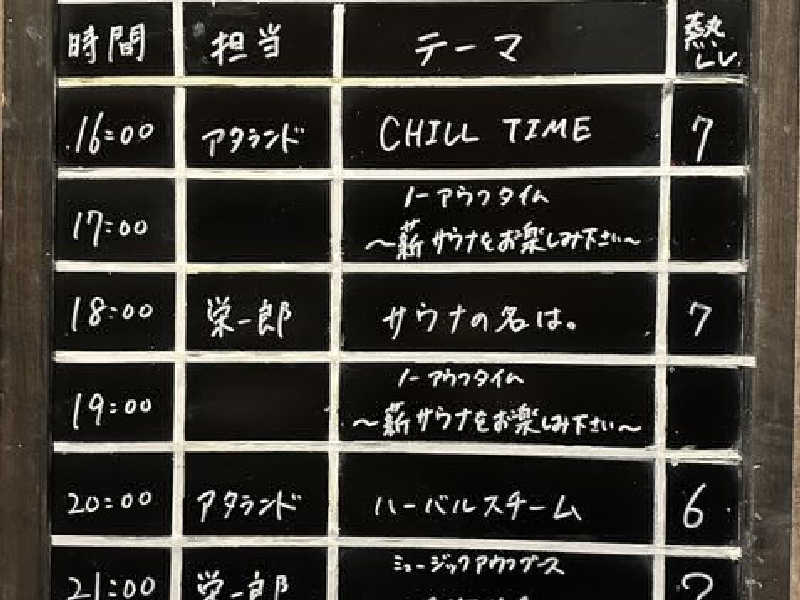 時間 担当 テーマ 熱Lv.
16:00 アタランド CHILL TIME 7
17:00 ノーアウフタイム
～薪サウナをお楽しみ下さい～
18:00 栄一郎 サウナの名は。 7
19:00 ノーアウフタイム
～薪サウナをお楽しみ下さい～
20:00 アタランド ハーバルスチーム 6
21:00 栄一郎 ミュージックアウフグース